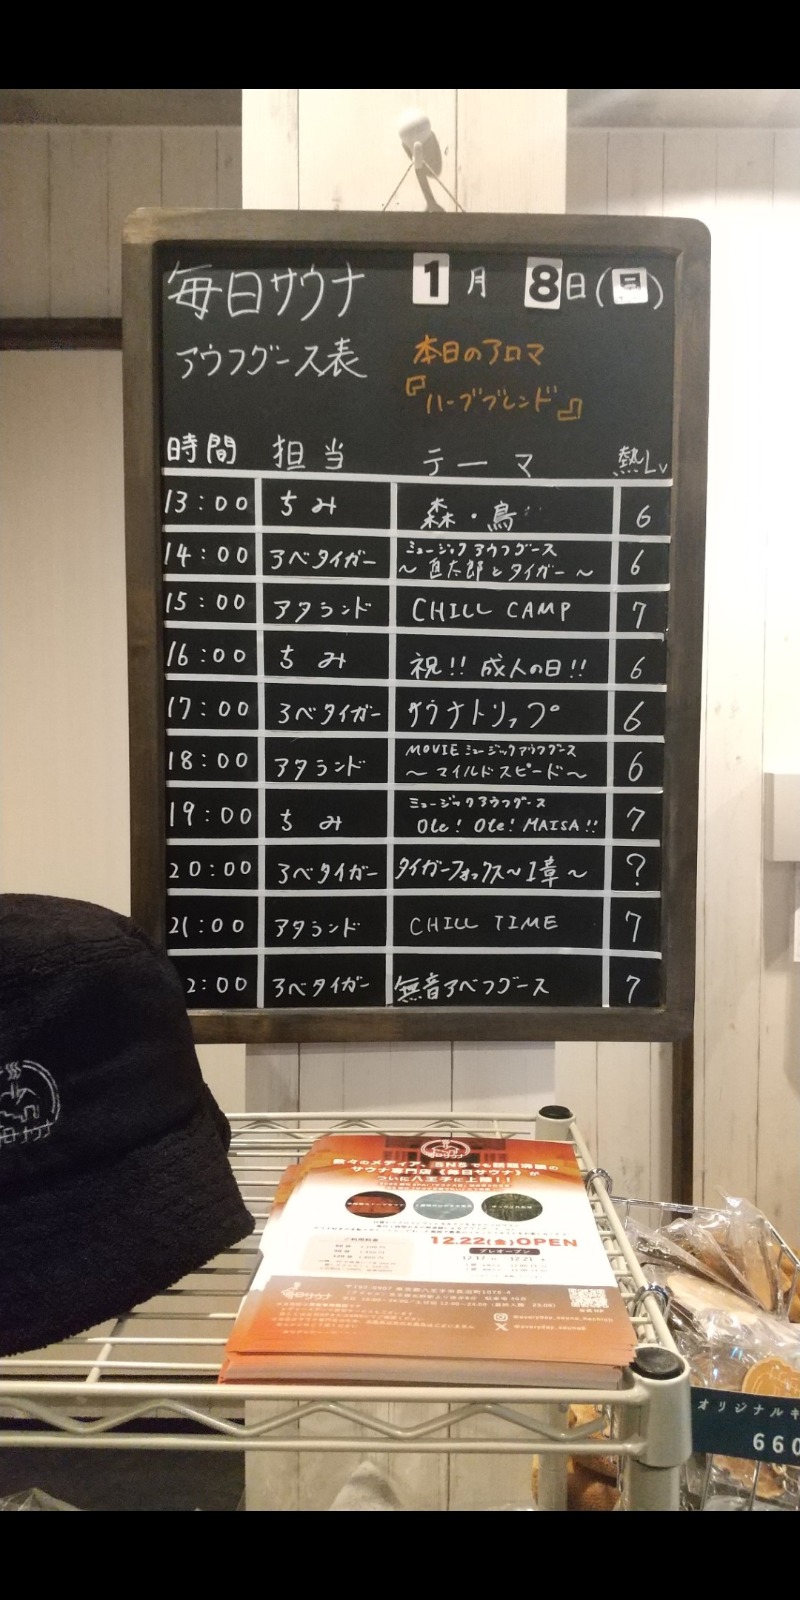 毎日サウナ 1月 8日(月)
アウフグース表
本日のアロマ
『ハーブブレンド』
時間 担当 テーマ 熱Lv
13:00 ちみ 森・鳥 6
14:00 アベタイガー ミュージックアウフグース 6
～ 直太郎とタイガー ～
15:00 アタランド CHILL CAMP 7
16:00 ちみ 祝!! 成人の日!! 6
17:00 アベタイガー サウナトリップ 6
18:00 アタランド MOVIE ミュージックアウフグース 6
～ マイルドスピード ～
19:00 ちみ ミュージックアウフグース 7
Ole! Ole! MAISA!!
20:00 アベタイガー タイガーフォックス～1章～ ?
21:00 アタランド CHILL TIME 7
2:00 アベタイガー 無音アベフグース 7
毎日サウナ
日サウナ
数々のメディア、SNSでも話題沸騰の
サウナ専門店《毎日サウナ》が
ついに八王子に上陸!!
ご利用料金
12.22(金)OPEN
プレオープン
オリジナルキ
660